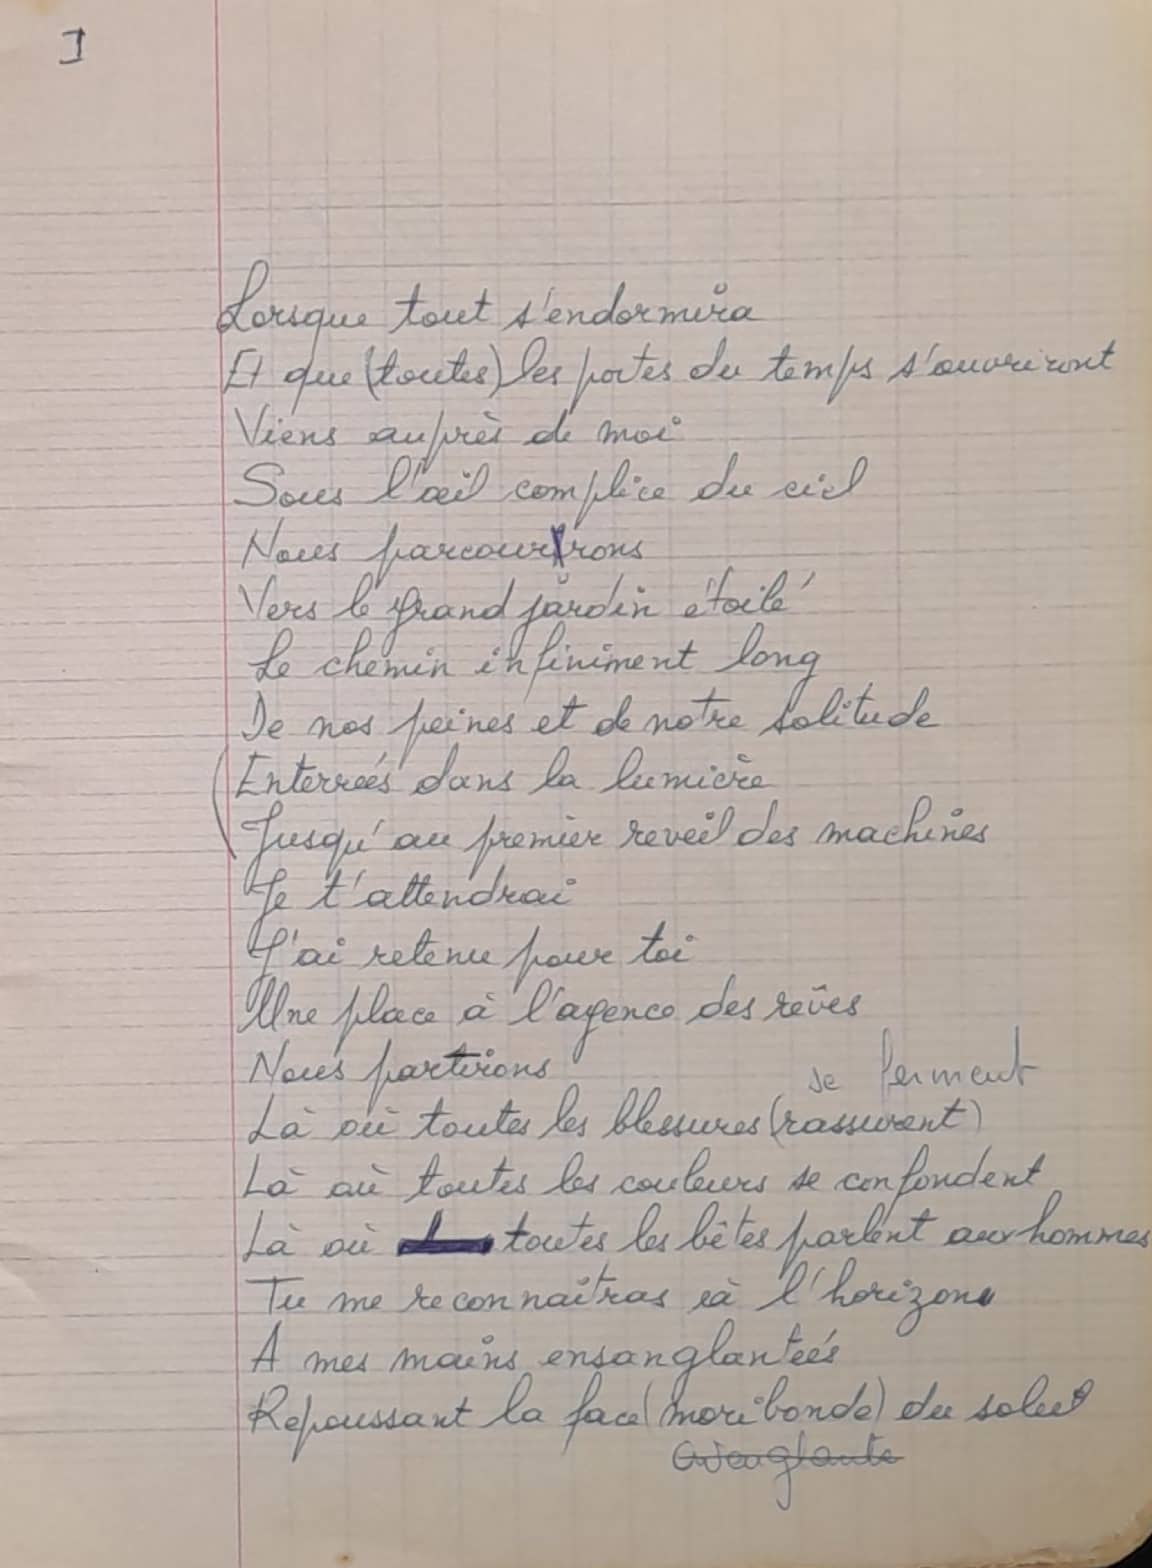 I
Lorsque tout s'endormira
Et que (toutes) les portes du temps s'ouvriront
Viens auprès de moi
Sous l'œil complice du ciel
Nous parcourrons
Vers le grand jardin étoilé
Le chemin infiniment long
De nos peines et de notre solitude
(Enterrées dans la lumière
Jusqu'au premier reveil des machines
Je t'attendrai
J'ai retenu pour toi
Une place à l'agence des rêves
Nous partirons
se ferment
Là où toutes les blessures (rassurent)
Là où toutes les couleurs se confondent
Là où toutes les bêtes parlent aux hommes
Tu me reconnaîtras à l'horizon
A mes mains ensanglantées
Repoussant la face (moribonde) du soleil
aveuglante